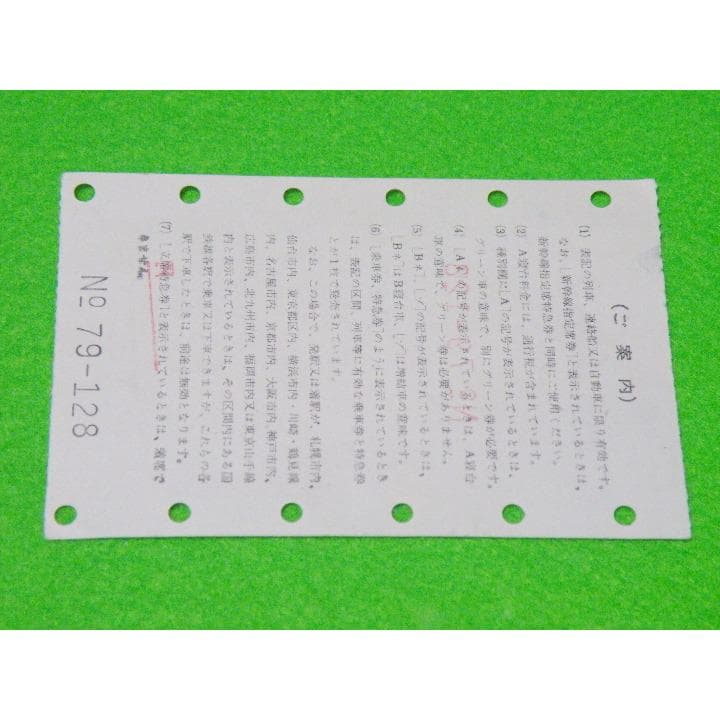 (ご案内)
(1) 表記の列車、連絡船又は自動車に限り有効です。
なお、「新幹線指定席券」と表示されているときは、
新幹線指定席特急券と同時にご使用ください。
(2) A寝台料金には、通行税が含まれています。
(3) 種別欄に「A」の記号が表示されているときは、
グリーン車の意味で、別にグリーン券が必要です。
(4) 「A
の記号が表示されているときは、A寝台
車の意味で、グリーン券は必要がありません。
(5) 「Bネ」、「ソ」の記号が表示されているときは、
「Bネ」はB寝台車、「ソ」は増結車の意味です。
(6) 「乗車券、特急券」のように表示されているとき
は、表記の区間、列車等に有効な乗車券と特急券
とが1枚で発売されています。
なお、この場合で、発駅又は着駅が、札幌市内、
仙台市内、東京都区内、横浜市内・川崎・鶴見線
内、名古屋市内、京都市内、大阪市内、神戸市内、
広島市内、北九州市内、福岡市内又は東京山手線
内と表示されているときは、その区間内にある国
鉄線各駅で乗車又は下車できますが、これらの各
駅で下車したときは、前途は無効となります。
(7) 「立席特急券」と表示されているときは、
No 79-128